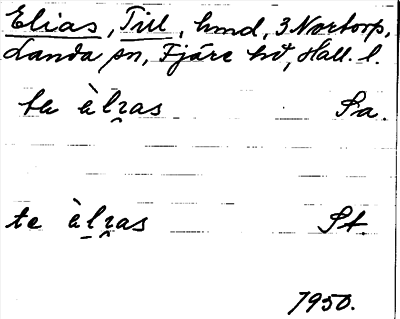 Elias, Till, hmd, 3 Nortorp,
Landa sn, Fjäre hd, Hall. l.
te ὰlɩas Sa.
te ὰlɩas St.
1950.